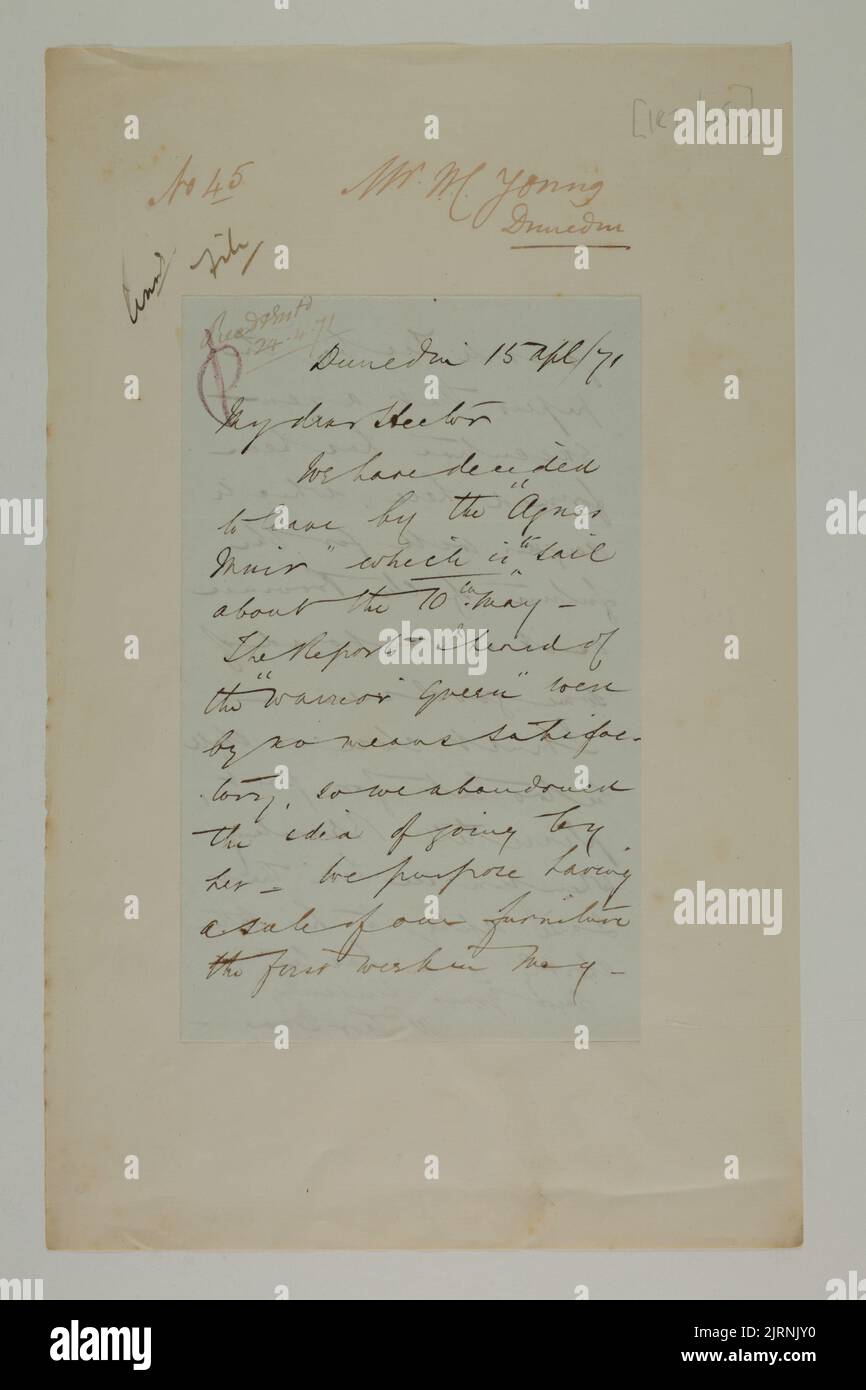 No 45
Mr. W. Young
Dunedin
file
24.4.71
Dunedin 15 Apl/71
My dear Hector
We have decided
to leave by the "Agnes
Muir" which is to sail
about the 10th May -
The Reports I heard of
the "Warrior Queen" were
by no means satisfac-
tory, so we abandoned
the idea of going by
her - We purpose having
a sale of our furniture
the first week in May -
alamy
Image ID: 2JRNJY0
www.alamy.com